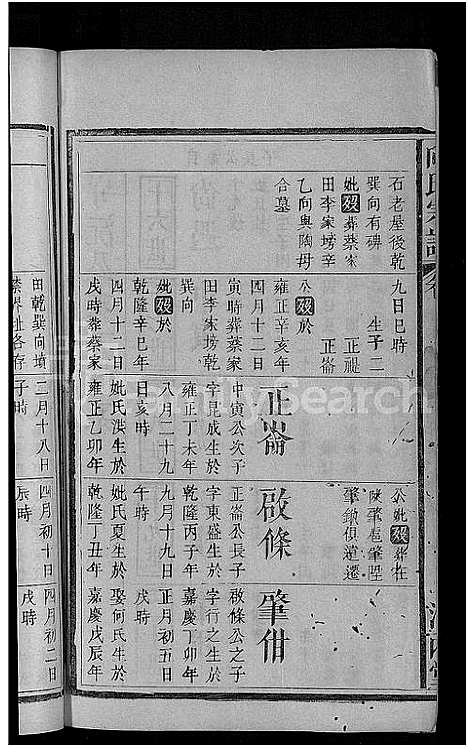 石老屋後乾
巽向有碑
妣歿葬蔡家
田李家塝辛
乙向與陶母
合墓
九日巳時
生子二
正禔
正崙
公歿於
雍正辛亥年
四月十二日
寅時葬蔡家
田李家塝乾
巽向
妣歿於
乾隆辛巳年
四月十二日
戌時葬蔡家
田乾巽向墳
禁界址各存
正崙
中寅公次子
字昆成生於
雍正丁未年
八月二十九
日亥時
妣氏洪生於
雍正乙卯年
二月十八日
子時
公妣歿葬在
肇鍁俱遺遷
啟條
正崙公長子
字東盛生於
乾隆丙子年
九月十九日
午時
妣氏夏生於
乾隆丁丑年
四月初十日
辰時
肇佄
啟條公之子
字行之生於
嘉慶丁卯年
正月初五日
戌時
娶何氏生於
嘉慶戊辰年
四月初二日
戌時
FamilySearch